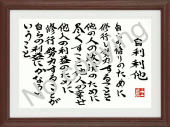 自利利他
自らの悟りのために
修行し努力することと
他の人の救済のために
尽くすこと他人の幸せ
他人の利益のために
修行努力することが
自らの利益にかなうと
いうこと